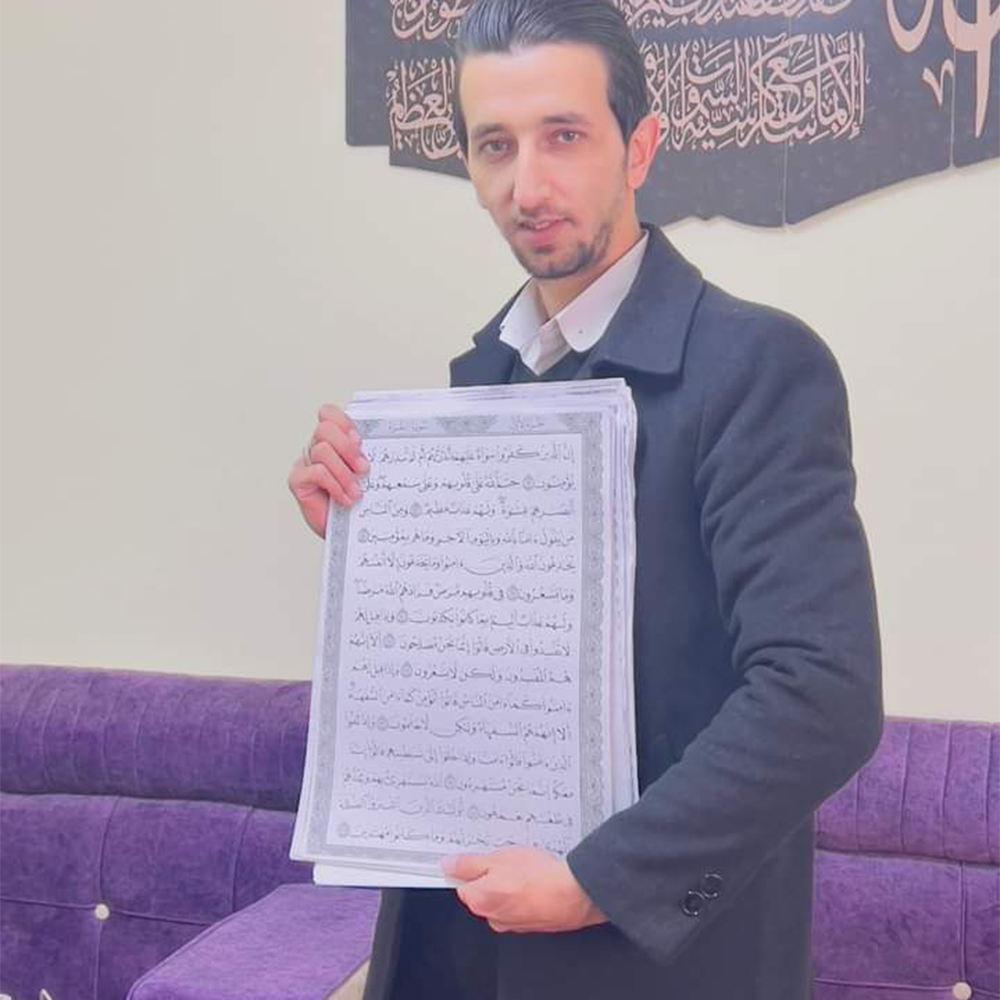 إلا بما شاء وسع كرسيه السموات والأ العظيم
الجزء الأول سورة البقرة
إن الذين كفروا سواء عليهم ءأنذرتهم أم لم تنذرهم لا
يؤمنون ختم الله على قلوبهم وعلى سمعهم وعلى
أبصرهم غشوة ولهم عذاب عظيم ومن الناس
من يقول ءامنا بالله وباليوم الأخر وما هم بمؤمنين
يخدعون الله والذين ءامنوا وما يخدعون إلا أنفسهم
وما يشعرون في قلوبهم مرض فزادهم الله مرضا
ولهم عذاب أليم بما كانوا يكذبون وإذا قيل لهم
لا تفسدوا في الأرض قالوا إنما نحن مصلحون ألا إنهم
هم المفسدون ولكن لا يشعرون وإذا قيل لهم
ءامنوا كما ءامن الناس قالوا أنؤمن كما ءامن السفهاء
ألا إنهم هم السفهاء ولكن لا يعلمون وإذا لقوا
الذين ءامنوا قالوا ءامنا وإذا خلوا إلى شيطينهم قالوا إنا
معكم إنما نحن مستهزءون الله يستهزئ بهم ويمدهم
في طغينهم يعمهون أولئك الذين اشتروا الضللة
بالهدى فما ربحت تجرتهم وما كانوا مهتدين